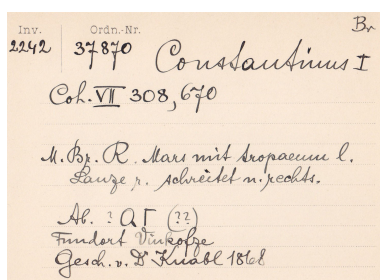 Br
Inv. Ordn.-Nr.
2242 37870 Constantinus I
Coh. VII 308, 670
M. Br. R. Mars mit tropaeum l.
Lanze r. schreitet n. rechts.
Ab. ? Q Γ (??)
Fundort
Gesch. v. Dr Knabl 1868